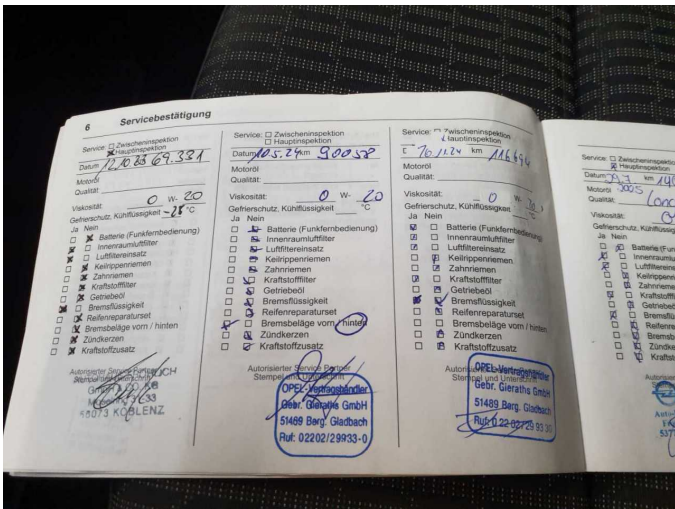 6 Servicebestätigung
Service: □ Zwischeninspektion
☒ Hauptinspektion
Datum 12.10.23 69.331
Motoröl
Qualität:
Viskosität: 0 W- 20
Gefrierschutz, Kühlflüssigkeit -28 °C
Ja Nein
□ ☒ Batterie (Funkfernbedienung)
☒ □ Innenraumluftfilter
☒ □ Luftfiltereinsatz
□ ☒ Keilrippenriemen
□ ☒ Zahnriemen
□ ☒ Kraftstofffilter
□ ☒ Getriebeöl
☒ □ Bremsflüssigkeit
□ ☒ Reifenreparaturset
□ ☒ Bremsbeläge vorn / hinten
□ ☒ Zündkerzen
□ ☒ Kraftstoffzusatz
Autorisierter Service Partner
KOBLENZ
Service: □ Zwischeninspektion
□ Hauptinspektion
Datum 10.5.24 km 90058
Motoröl
Qualität:
Viskosität: 0 W- 20
Gefrierschutz, Kühlflüssigkeit °C
Ja Nein
□ ☒ Batterie (Funkfernbedienung)
□ ☒ Innenraumluftfilter
□ ☒ Luftfiltereinsatz
□ ☒ Keilrippenriemen
□ ☒ Zahnriemen
□ ☒ Kraftstofffilter
□ ☒ Getriebeöl
□ ☒ Bremsflüssigkeit
□ ☒ Reifenreparaturset
☒ □ Bremsbeläge vorn / hinten
□ ☒ Zündkerzen
□ ☒ Kraftstoffzusatz
Autorisierter Service Partner
Stempel und Unterschrift
OPEL-Vertragshändler
Gebr. Gieraths GmbH
51469 Berg. Gladbach
Ruf: 02202/29933-0
Service: Zwischeninspektion
Hauptinspektion
11.24 km 116694
Motoröl
Qualität:
Viskosität: 0 W-
Gefrierschutz, Kühlflüssigkeit °C
Ja Nein
☒ □ Batterie (Funkfernbedienung)
☒ □ Innenraumluftfilter
☒ □ Luftfiltereinsatz
□ ☒ Keilrippenriemen
□ ☒ Zahnriemen
☒ □ Kraftstofffilter
□ ☒ Getriebeöl
☒ □ Bremsflüssigkeit
□ ☒ Reifenreparaturset
□ ☒ Bremsbeläge vorn / hinten
□ ☒ Zündkerzen
□ ☒ Kraftstoffzusatz
Autorisierter
Stempel und Unterschrift
OPEL-Vertragshändler
Gebr. Gieraths GmbH
51469 Berg. Gladbach
Ruf: 0 22 02 / 29 93 30
Service: □ Zwischeninspektion
☒ Hauptinspektion
Datum km
Motoröl
Qualität:
Viskosität:
Gefrierschutz, Kühlflüssig
Ja Nein
Batterie (Fun
Innenraumlu
Luftfiltereins
Keilrippenri
Zahnrieme
Kraftstofffi
Getriebeöl
Bremsflüs
Reifenre
Bremsbe
Zündke
Kraftst